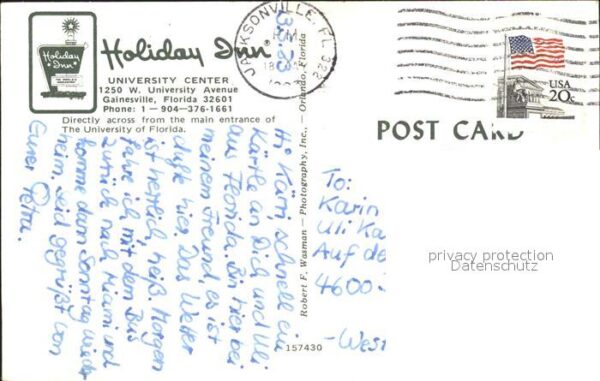 Holiday Inn
Holiday Inn
UNIVERSITY CENTER
1250 W. University Avenue
Gainesville, Florida 32601
Phone: 1 — 904-376-1661
Directly across from the main entrance of
The University of Florida.
JACKSONVILLE, FL 322
P.M.
USA
20c
POST CARD
Hi Karin, schnell ein
Kärtle an Dich und Uli
aus Florida. Bin hier bei
meinem Freund, es ist
dufte hier. Das Wetter
ist herrlich, heiß. Morgen
fahre ich mit dem Bus
zurück nach Miami und
komme dann Sonntag wieder
heim. Seid gegrüßt von
Eurer Petra.
Robert F. Wasman — Photography, Inc., — Orlando, Florida
157430
To:
Karin
Uli Ka
Auf de
4600
- West
privacy protection
Datenschutz